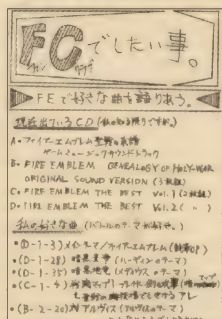 FCでしたい事。
FEで好きな曲を語りあう。
現在出ているCD(私の知る限りですが。)
A・ファイアーエムブレム 聖戦の系譜
ゲームミュージックサウンドトラック
B・FIRE EMBLEM GENEALOGY OF HOLY-WAR
ORIGINAL SOUND VERSION (3枚組)
C・FIRE EMBLEM THE BEST Vol.1 (2枚組)
D・FIRE EMBLEM THE BEST Vol.2 ( 〃 )
私の好きな曲
・(D-1-3) メインテーマ/ファイアーエムブレム
・(D-1-28) 暗黒皇帝 (ハーディンのテーマ)
・(D-1-35) 暗黒地竜 (メディウスのテーマ)
・(C-1-4)
・(B-2-20) 対アルヴィス (アルヴィスのテーマ)